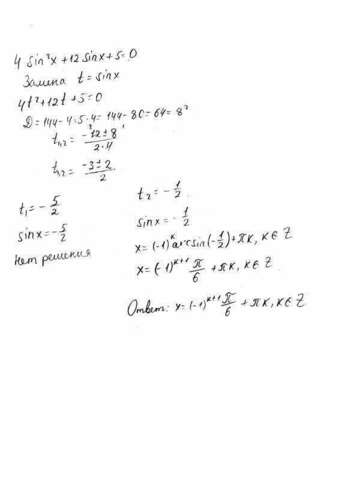 4 sin²x + 12 sinx + 5 = 0
Замена t = sinx
4t² + 12t + 5 = 0
D = 144 - 4·5·4 = 144 - 80 = 64 = 8²
t₁,₂ = (-12 ± 8) / (2·4)
t₁,₂ = (-3 ± 2) / 2
t₁ = - 5/2
sinx = - 5/2
Нет решения
t₂ = - 1/2
sinx = - 1/2
x = (-1)ᵏ arcsin(- 1/2) + πk, k ∈ Z
x = (-1)ᵏ⁺¹ π/6 + πk, k ∈ Z
Ответ: x = (-1)ᵏ⁺¹ π/6 + πk, k ∈ Z